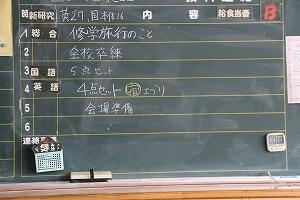 新研究 英27、国木16
内容
給食当番 B
1 総合 修学旅行のこと
2 全校卒練
3 国語 5点セット
4 英語 4点セット エブリ
5 会場準備
6 〃
連絡